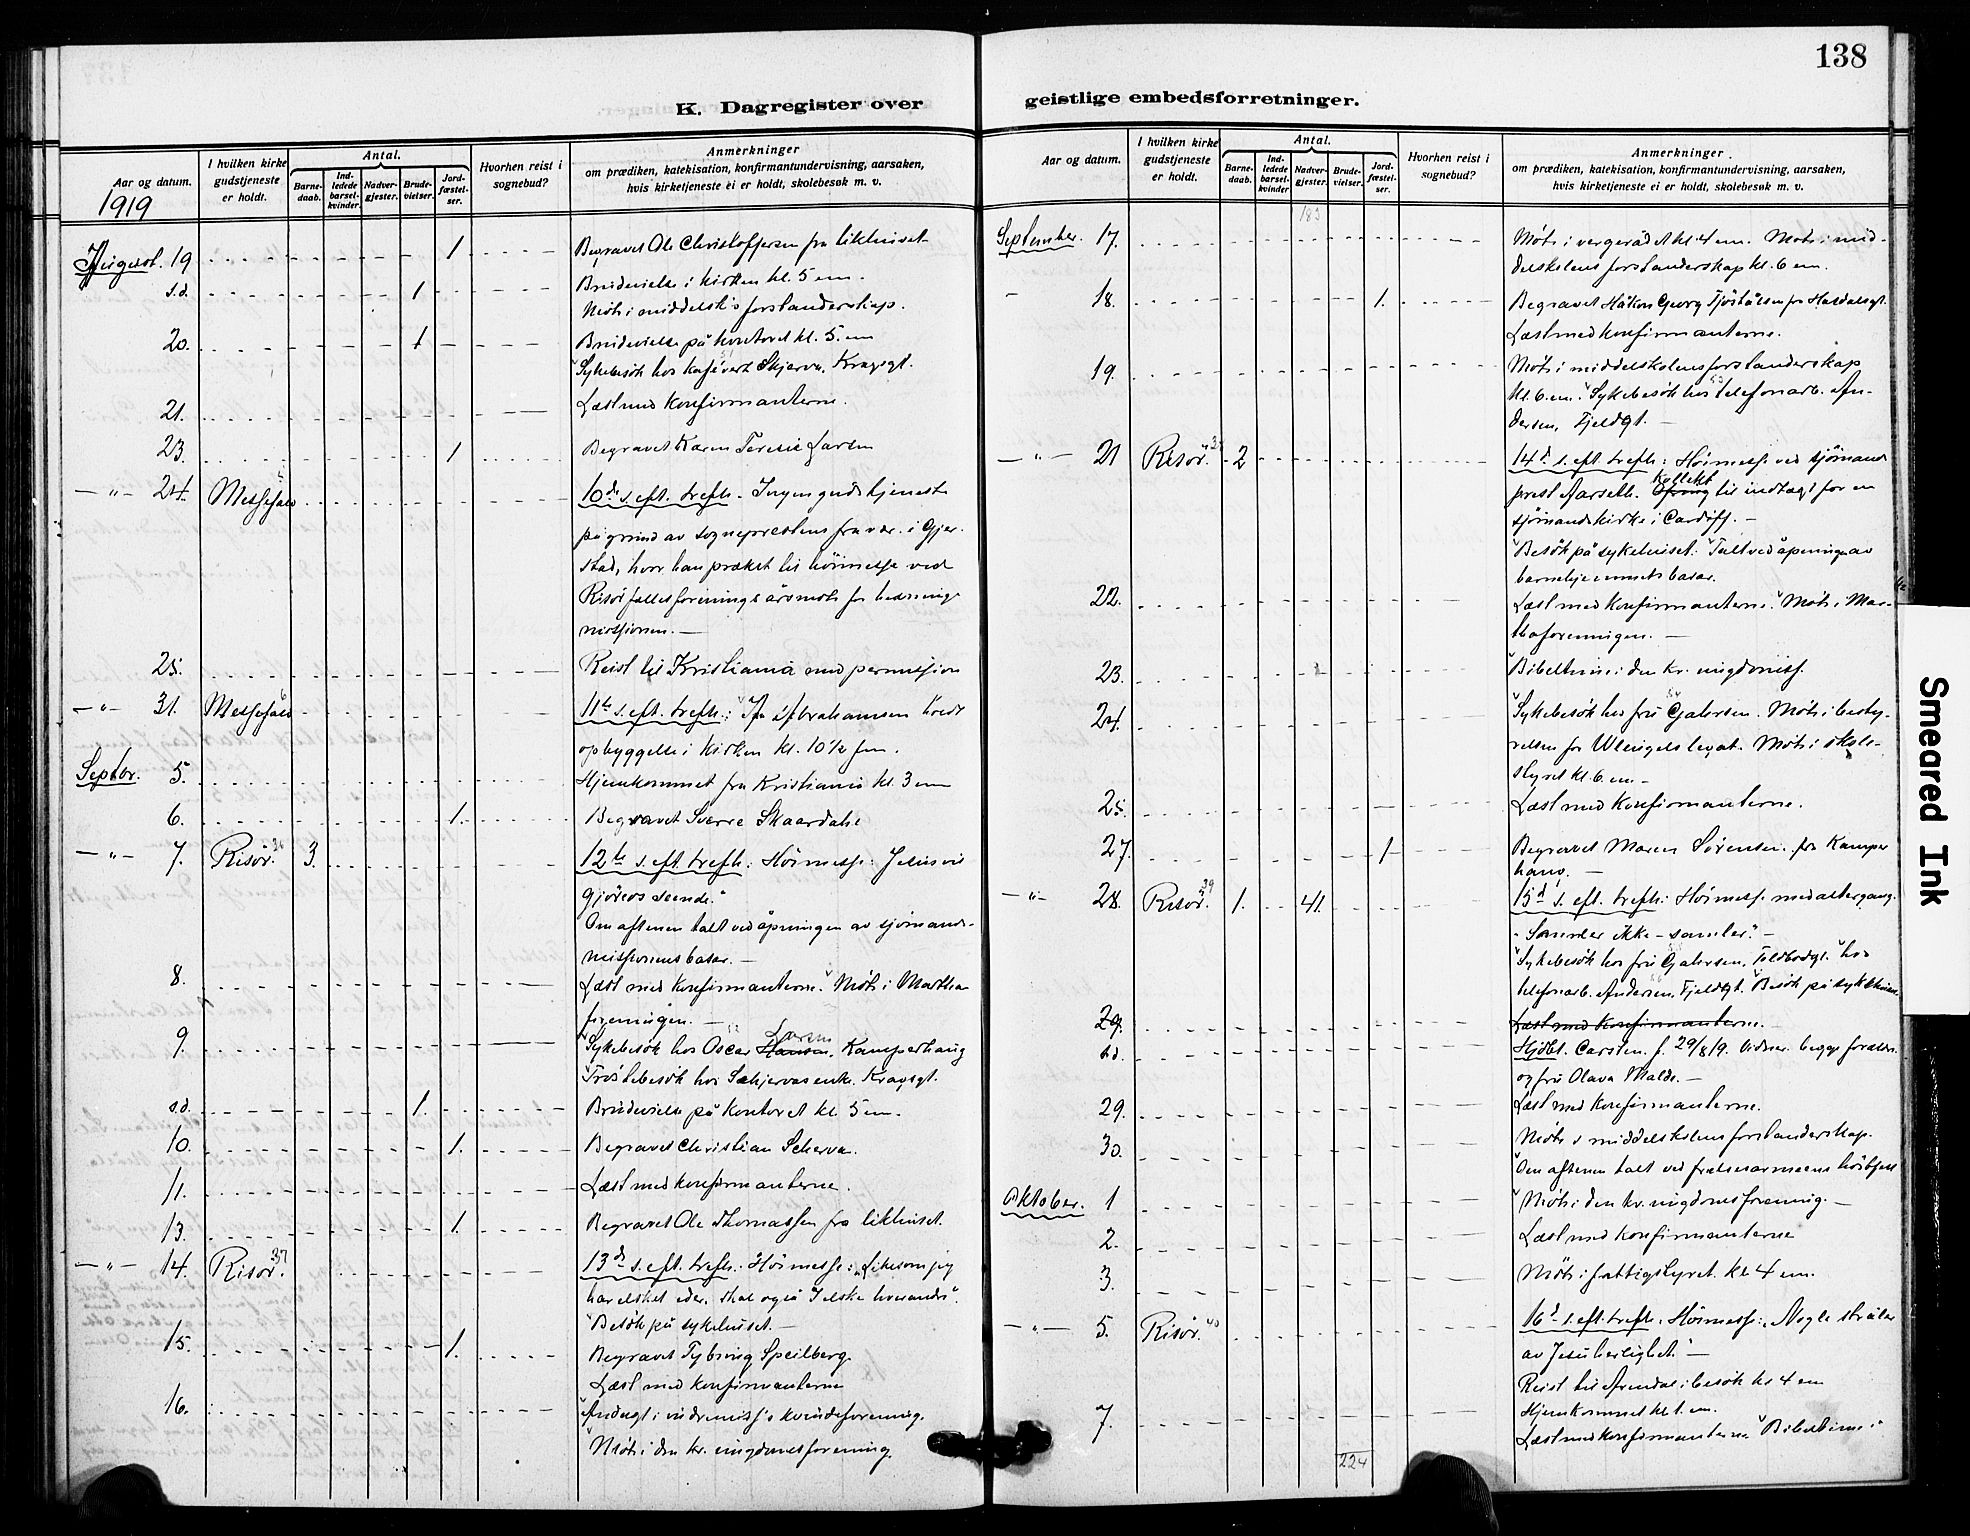 138
K. Dagregister over
geistlige embedsforretninger.
Aar og datum.
1919
I hvilken kirke gudstjeneste er holdt.
Antal.
Barne-daab.
Ind-ledede barsel-kvinder.
Nadver-gjester.
Brude-vielser.
Jord-fæstel-ser.
Hvorhen reist i sognebud?
Anmerkninger
om prædiken, katekisation, konfirmantundervisning, aarsaken,
hvis kirketjeneste ei er holdt, skolebesøk m. v.
August. 19 1 Begravet Ole Christoffersen fra likhuset
s.d. 1 Brudevielse i kirken kl. 5 em.
Møte i middelsk's forstanderskap.
20. 1 Brudevielse på kontoret kl. 5. em
Sykebesøk hos kafévert Skjerva, Kragsgt.
21. Læst med konfirmanterne.
23. 1 Begravet Karen Teresie Larsen
—"— 24. Messefald 10de s. eft. trefh. Ingen gudstjeneste
på grund av sogneprestens fravær i Gjer-
stad, hvor han præket til høimesse ved
Risør fællesforenings årsmøte for hedninge
missionen. —
25. Reist til Kristiania med permission
—"— 31. Messefald 11te s. eft. trefh.: Abrahamsen holdt
opbyggelse i kirken kl. 10½ fm.
Septbr. 5. Hjemkommet fra Kristiania kl. 3 em
6. 1. Begravet Sverre Skaardalse
—"— 7. Risør. 36 3. 12te s. eft. trefh: Høimesse: Jesus vil
gjøre os seende."
Om aftenen talt ved åpningen av sjømands-
missionens basar. —
8. Læst med konfirmanterne. Møte i Martha
foreningen. —
9. Sykebesøk hos Oscar Hansen Larsen, Kamperhaug
Trøstebesøk hos Schjervas enke. Kragsgt.
s.d. 1. Brudevielse på kontoret kl. 5 em.
10. 1. Begravet Christian Scherva.
11. Læst med konfirmanterne.
13. 1. Begravet Ole Thomassen fra likhuset.
—"— 14. Risør. 37 13de s. eft. trefh.: Høimesse: "Likesom jeg
har elsket eder, skal også I elske hverandre".
Besøk på sykehuset. —
15. 1. Begravet Tybring Speilberg.
Læst med konfirmanterne
16. Andagt i indremiss's kvindeforening.
Møte i den kr. ungdomsforening.
Aar og datum.
I hvilken kirke gudstjeneste er holdt.
Antal.
Barne-daab.
Ind-ledede barsel-kvinder
Nadver-gjester.
Brude-vielser.
Jord-fæstel-ser.
Hvorhen reist i sognebud?
Anmerkninger.
om prædiken, katekisation, konfirmantundervisning, aarsaken,
hvis kirketjeneste ei er holdt, skolebesøk m. v.
183
September. 17. Møte i vergerådet kl. 4 em. Møte i mid-
delskolens forstanderskap kl. 6 em.
18. 1. Begravet Håkon Georg Tjøstølsen fra Hasdalsgt.
Læst med konfirmanterne.
19. Møte i middelskolens forstanderskap
kl. 6. em. Sykebesøk hos telefonarb. An-
dersen, Fjeldgt. —
—"— 21 Risør. 38 2 14de s. eft. trefh: Høimesse ved sjømands
prest Aarseth. Ofring Kollekt til indtægt for en
sjømandskirke i Cardiff. —
Besøk på sykehuset. Talt ved åpningen av
barnehjemmets basar.
22. Læst med konfirmanterne. Møte i Mar-
thaforeningen. —
23. Bibeltime i den kr. ungdomsf.
24. Sykebesøk hos fru Møte i besty-
relsen for legat. Møte i skole-
styret kl. 6. em. —
25. Læst med konfirmanterne.
27. 1 Begravet Maren Sørensen. fra Kamper
haug. —
—"— 28. Risør. 39 1. 41. 15de s. eft. trefh: Høimesse med altergang.
"Sander ikke – samler." —
Sykebesøk hos fru Toldbodgt. hos
telefonarb. Andersen, Fjeldgt. Besøk på sykehuset.
29. Læst med konfirmanterne.
s.d. Hjdbt. Carsten. f. 29/8 19. Vidner: begge forældre
og fru Olava Malde. —
29. Læst med konfirmanterne.
30. Møte i middelskolens forstanderskap.
Om aftenen talt ved frelsesarmeens høstfest
Oktober. 1 Møte i den kr. ungdomsforening. —
2. Læst med konfirmanterne
3. Møte i fattigstyret. kl. 4 em.
—"— 5. Risør. 40 16de s. eft. trefh. Høimesse: "Nogle stråler
av Jesu herlighet." —
Reist til Arendal i besøk kl 4 em
7. Hjemkommet kl 1. em.
Læst med konfirmanterne Bibeltime i
224
Smeared Ink